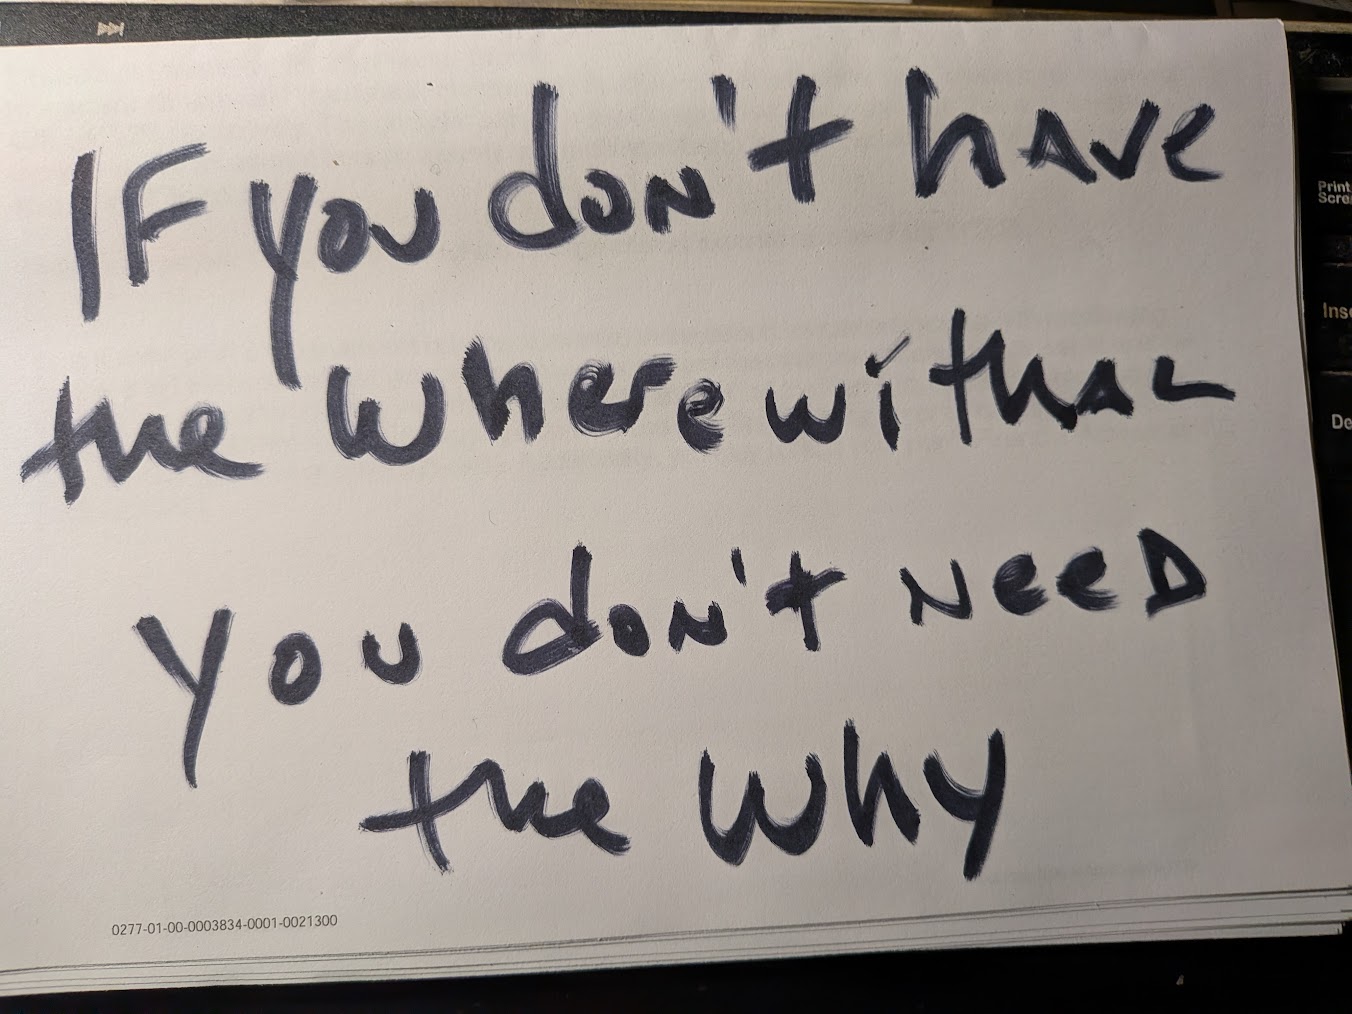 If you don't have
the wherewithal
you don't need
the why
0277-01-00-0003834-0001-0021300
Print
Inse
De